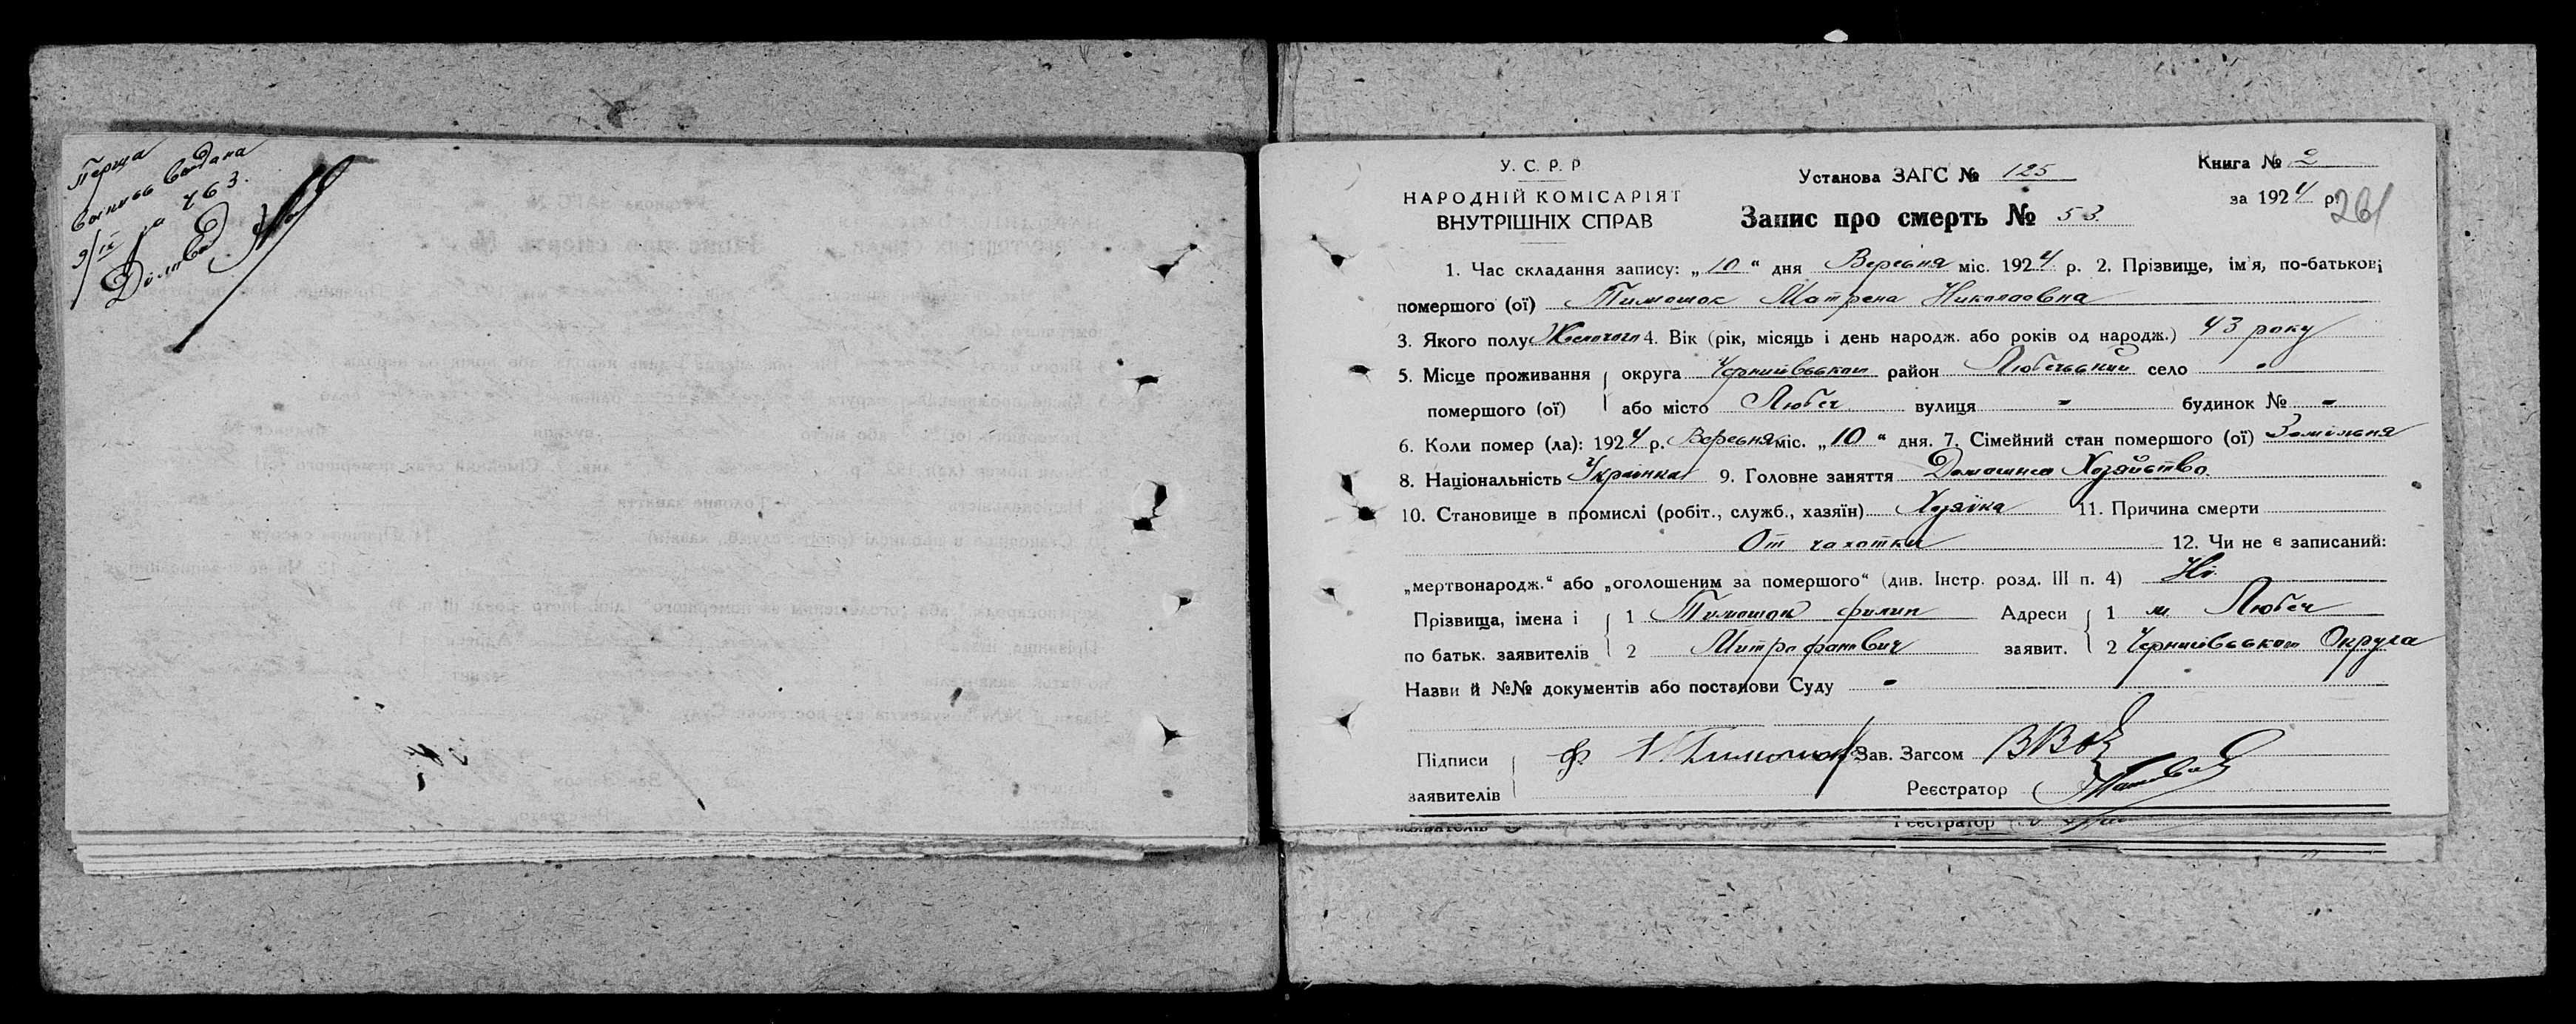 Перша
выпись выдана
9/IX за 463.
У. С. Р. Р.
НАРОДНІЙ КОМІСАРІЯТ
ВНУТРІШНІХ СПРАВ
Установа ЗАГС № 125
Запис про смерть № 53.
Книга № 2
за 1924 р.
261
1. Час складання запису: „10“ дня Вересня міс. 1924 р. 2. Прізвище, ім'я, по-батькові
помершого (ої) Тимошок Матрена Николаовна
3. Якого полу Жоночого 4. Вік (рік, місяць і день народж. або років од народж.) 43 року
5. Місце проживання округа Чернигівської район Любечський село "
помершого (ої) або місто Любеч вулиця - будинок № -
6. Коли помер (ла): 1924 р. Вересня міс. „10“ дня. 7. Сімейний стан помершого (ої) Замужня
8. Національність Українка 9. Головне заняття Домашнее Хозяйство.
10. Становище в промислі (робіт., служб., хазяїн) Хозяйка 11. Причина смерти
От чахотки 12. Чи не є записаний:
„мертвонародж.“ або „оголошеним за помершого“ (див. Інстр. розд. III п. 4) Ні
Прізвища, імена і 1 Тимошок Филип Адреси 1 м Любеч
по батьк. заявителів 2 Митрофанович заявит. 2 Чернигівської Округа
Назви й №№ документів або постанови Суду -
Підписи Ф. Тимошок Зав. Загсом
заявителів Реєстратор
заявителів Реєстратор